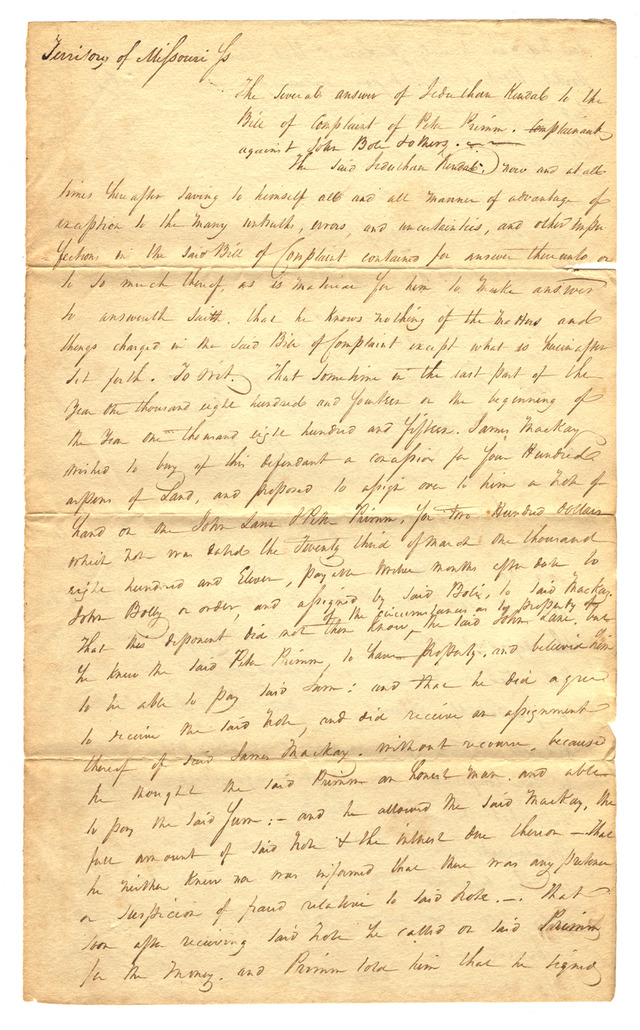 Territory of Missouri Ss
The several answer of Jeduthan Kendal to the
Bill of Complaint of Peter Primm. Complainant
against John Boli & others.
The said Jeduthan Kendal. now and at all
times hereafter saving to himself all and all manner of advantage of
exception to the many untruths, errors, and uncertainties, and other imper
fections in the said Bill of Complaint contained for answer thereunto or
to so much thereof as is material for him to make answer
to answereth saith. that he knows nothing of the matters and
things charged in the said Bill of Complaint except what is hereinafter
set forth. To Wit. That sometime in the last part of the
Year one thousand eight hundred and fourteen or the beginning of
the Year one thousand eight hundred and fifteen. James Mackay
wished to buy of this defendant a concession for four Hundred
arpens of Land, and proposed to assign over to him a Note of
hand on one John Lane & Peter Primm, for two Hundred dollars
which note was dated the Twenty third of March one thousand
eight hundred and Eleven, payable twelve months after date to
John Boly or order, and assigned by said Boli, to said Mackay.
of the circumstances as to property of
That this deponent did not then know, the said John Lane, but
he knew the said Peter Primm, to have property. and believed him
to be able to pay said sum: and that he did agree
to receive the said Note, and did receive an assignment
thereof of said James Mackay. without recourse, because
he thought the said Primm an honest man. and able
to pay the said sum: - and he allowed the said Mackay, the
full amount of said Note & the interest due thereon - That
he neither knew nor was informed that there was any pretence
or suspicion of fraud relative to said Note. -. That
soon after receiving said Note he called on said Primm
for the money. and Primm told him that he signed